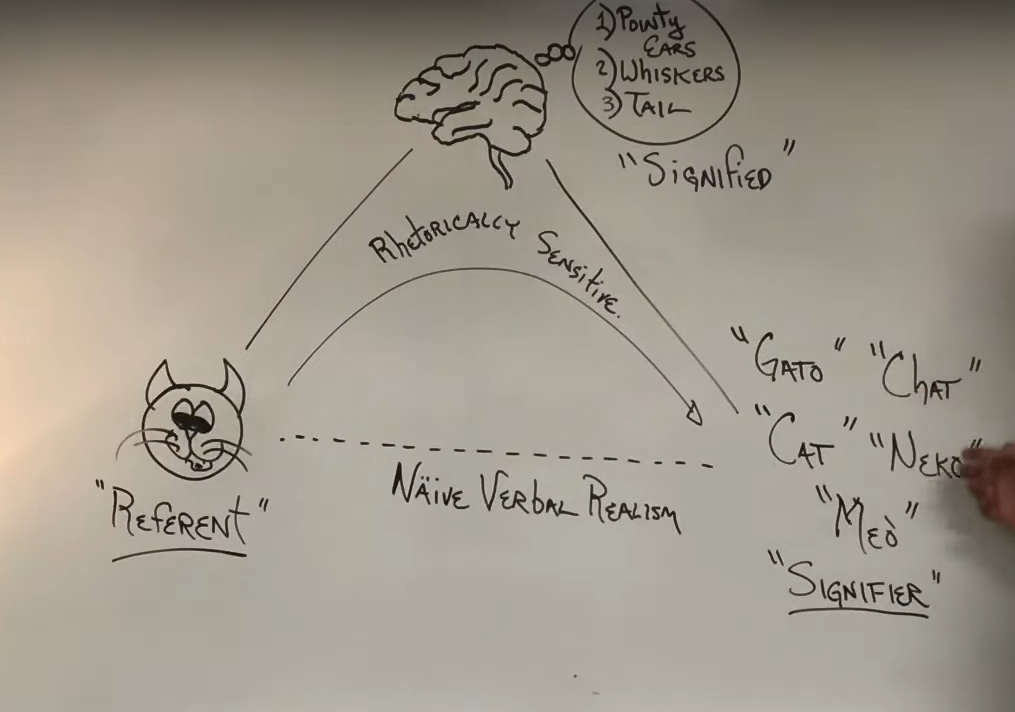 1) Pointy
Ears
2) Whiskers
3) Tail
"Signified"
Rhetorically Sensitive.
"Gato" "Chat"
"Cat" "Neko"
"Meò"
"Signifier"
"Referent"
Näive Verbal Realism